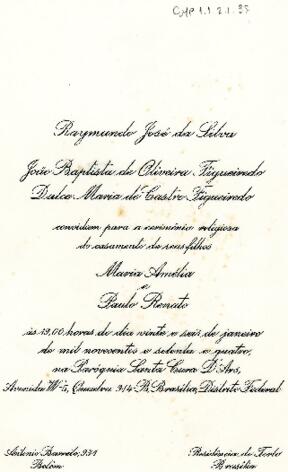 CMP 1.1 2.1. 37
Raymundo José da Silva
João Baptista de Oliveira Figueiredo
Dulce Maria de Castro Figueiredo
convidam para a cerimônia religiosa
do casamento de seus filhos
Maria Amélia
e
Paulo Renato
às 19,00 horas do dia vinte e seis de janeiro
de mil novecentos e setenta e quatro,
na Paróquia Santa Cura D'Ars,
Avenida W-5, Quadra 914- Brasília, Distrito Federal
Antonio Barreto, 931
Belém
Residência do Torto
Brasília